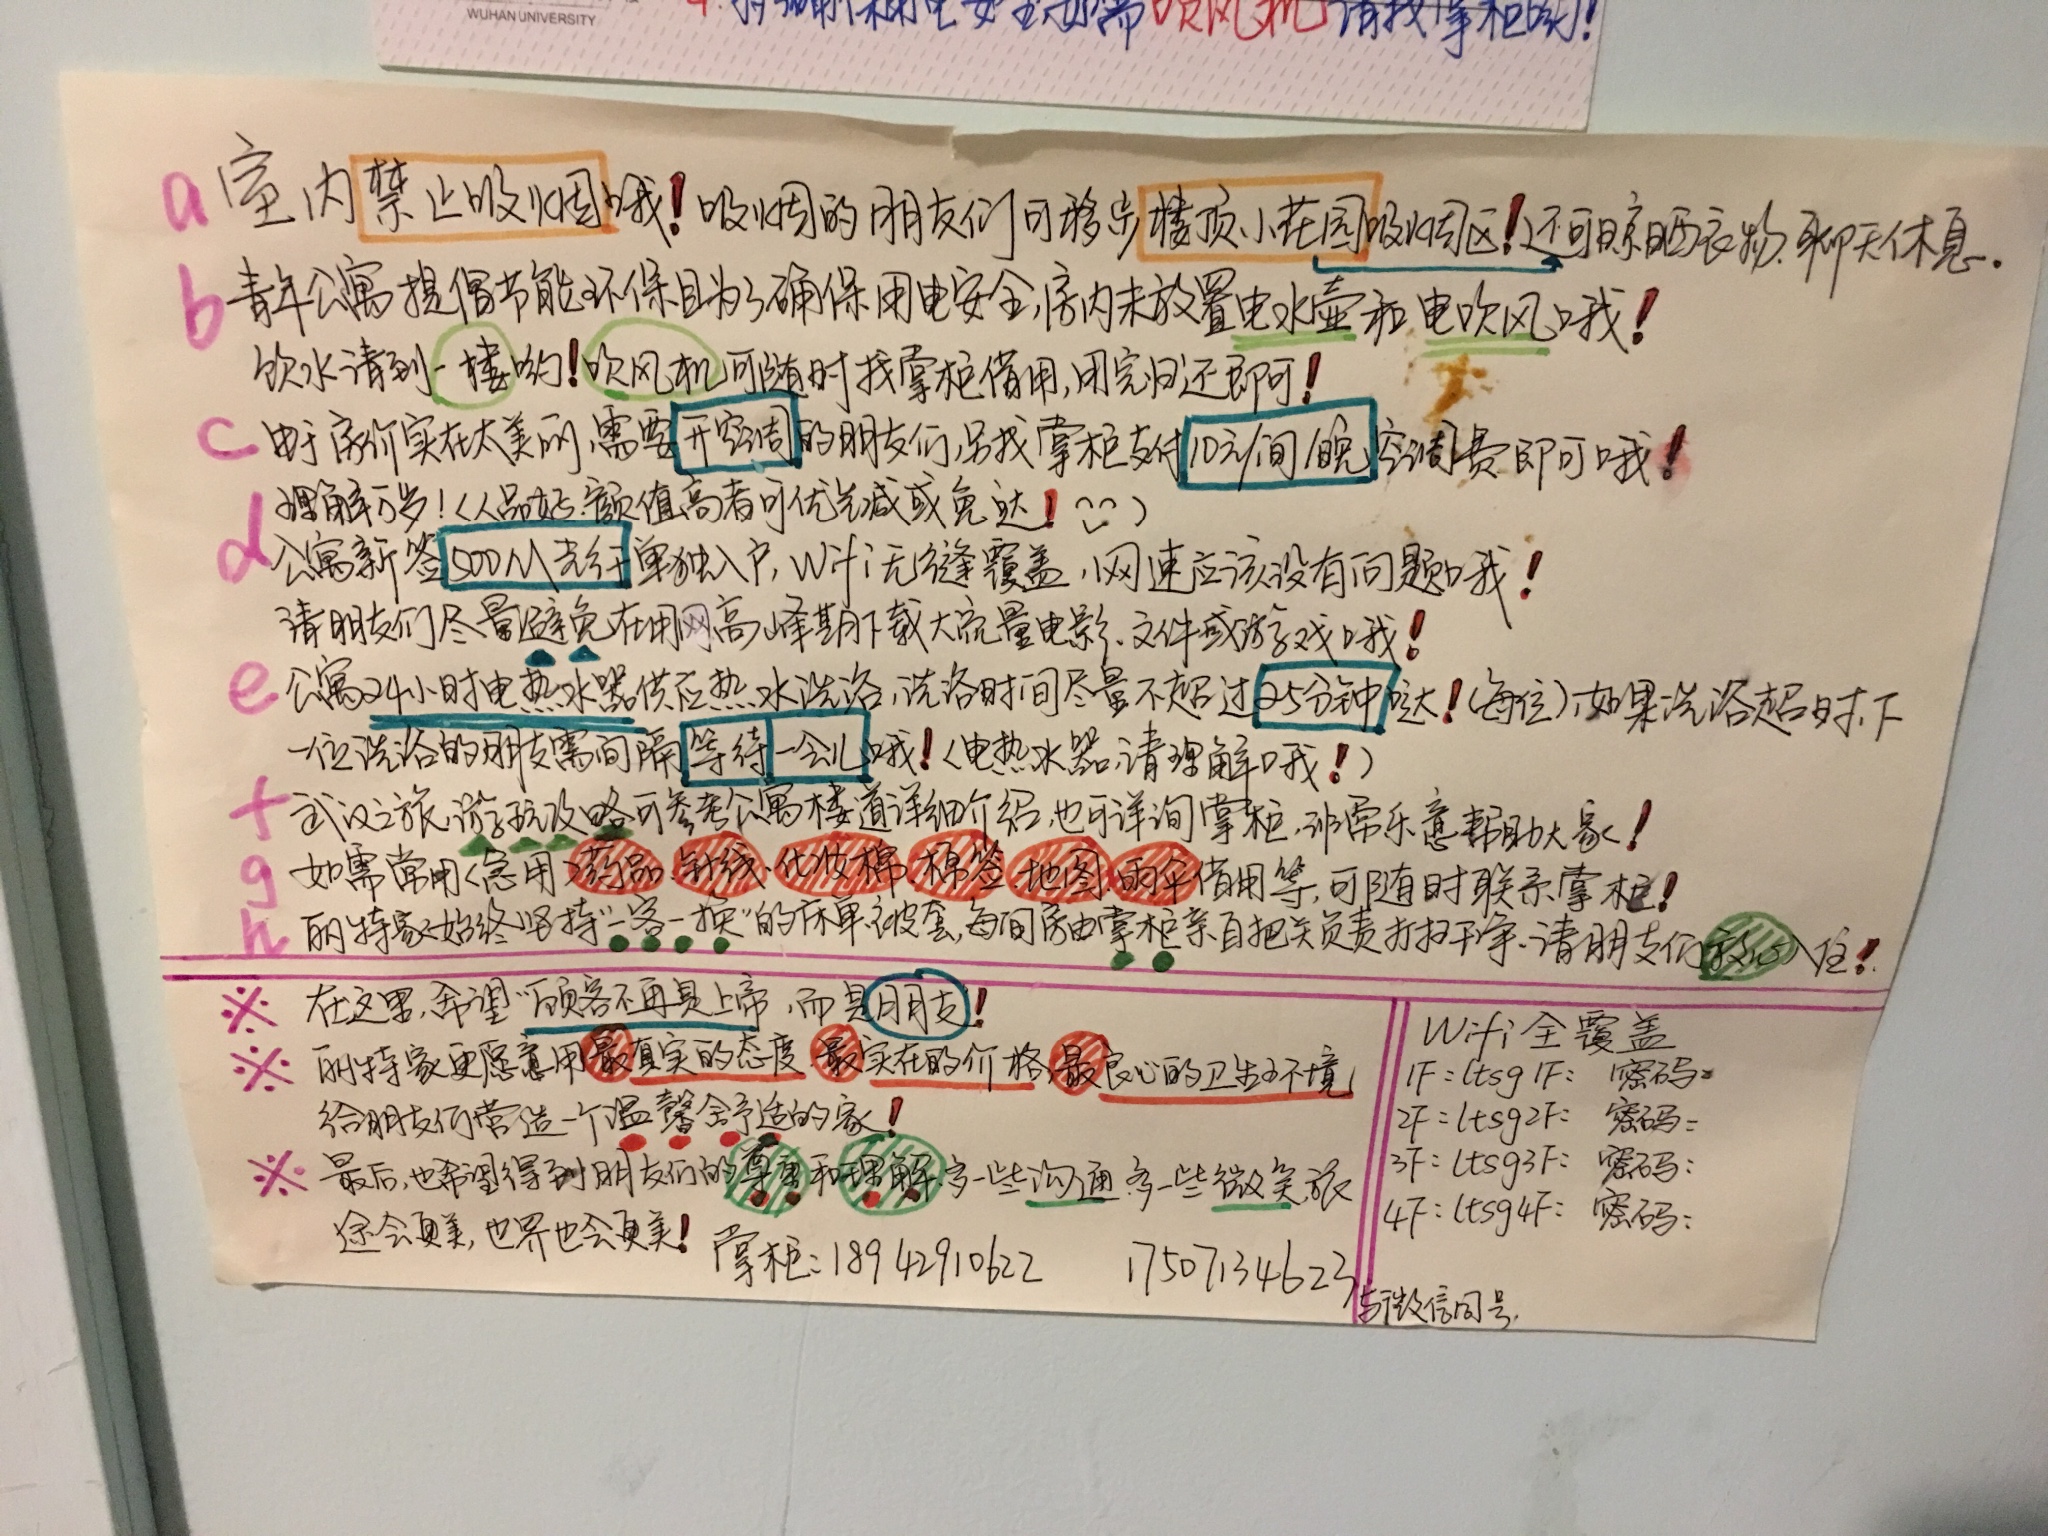 WUHAN UNIVERSITY
吹风机请找掌柜哟!
a 室内禁止吸烟哦!吸烟的朋友们可移步楼顶小花园吸烟区!还可晾晒衣物、聊天休息.
b 青年公寓提倡节能环保且为了确保用电安全,房内未放置电水壶和电吹风哦!
饮水请到一楼哟!吹风机可随时找掌柜借用,用完归还即可!
c 由于房价实在太美丽,需要开空调的朋友们,另找掌柜支付10元/间/晚空调费即可哦!
理解万岁!(人品好、额值高者可优先减或免达!)
d 公寓新签500M光纤单独入户,Wifi无缝覆盖,网速应该没有问题哦!
请朋友们尽量避免在用网高峰期下载大流量电影、文件或游戏哦!
e 公寓24小时电热水器供应热水洗浴,洗浴时间尽量不超过25分钟哒!(每位),如果洗浴超时,下
一位洗浴的朋友需间隔等待一会儿哦!(电热水器,请理解哦!)
f 武汉之旅,游玩攻略可参考公寓楼道详细介绍,也可详询掌柜,非常乐意帮助大家!
g 如需常用(急用)药品、针线、化妆棉、棉签、地图、雨伞借用等,可随时联系掌柜!
h 丽特家始终坚持“一客一换”的床单被套,每间房由掌柜亲自把关负责打扫干净、请朋友们放心入住!
※ 在这里,希望“顾客不再是上帝,而是朋友!
※ 丽特家更愿意用最真实的态度、最实在的价格,最良心的卫生环境,
给朋友们营造一个温馨舒适的家!
※ 最后,也希望得到朋友们的尊重和理解、多一些沟通、多一些微笑,旅
途会更美,世界也会更美!
掌柜:18942910622 17507134623
与微信同号.
Wifi全覆盖
1F:ltsg1F: 密码:
2F:ltsg2F: 密码:
3F:ltsg3F: 密码:
4F:ltsg4F: 密码: